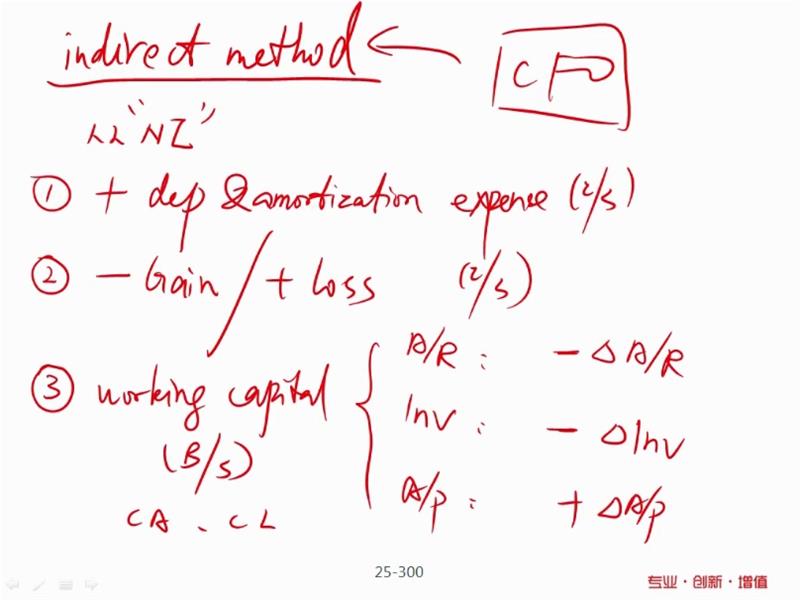 indirect method ← CFO
以 "NI"
① + dep & amortization expense (I/S)
② - Gain / + Loss (I/S)
③ working capital { A/R : - ΔA/R
(B/S) Inv : - ΔInv
CA、CL A/P : + ΔA/P
25-300
专业·创新·增值